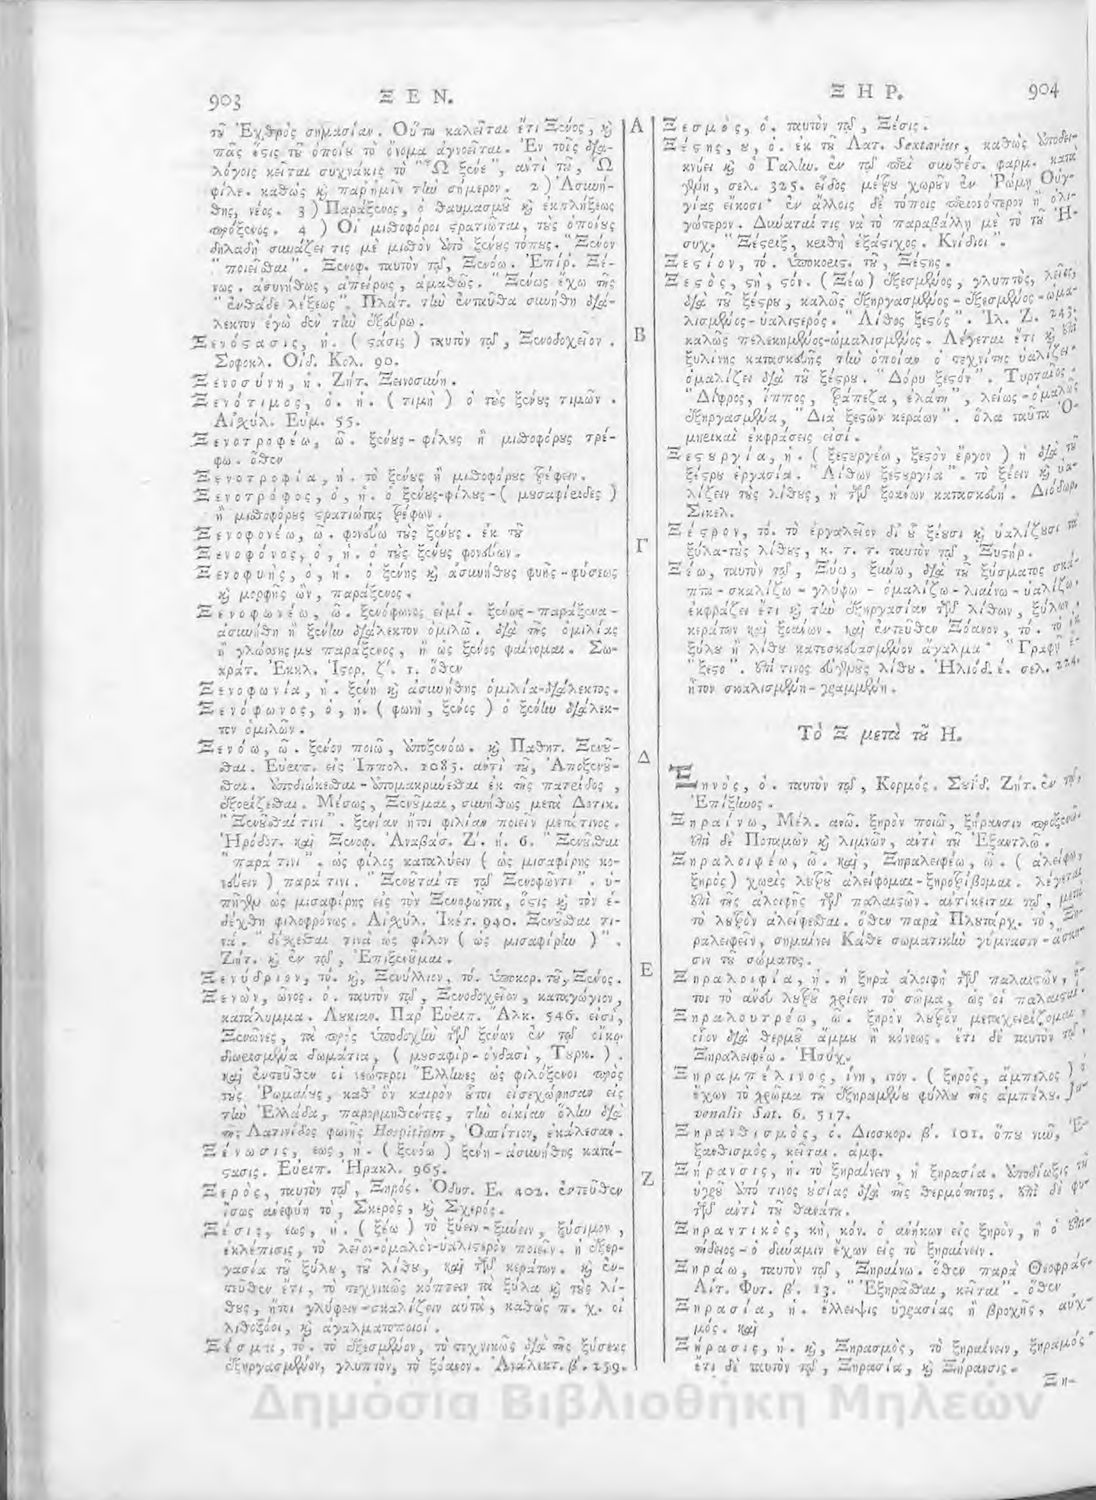 903 Ξ Ε Ν.
τȣ Ἐχθρὸς σημασίαν. Οὕτω καλεῖται ἔτι Ξένος, ϗ
πᾶς ὅςις τȣ ὁποίȣ τὸ ὄνομα ἀγνοεῖται. Ἐν τοῖς δια-
λόγοις κεῖται συχνάκις τὸ "Ὦ ξένε", αὐτὶ τȣ, Ὦ
φίλε. καθὼς ϗ παρ' ἡμῖν τὴν σήμερον. 2) Ἀσυνή-
θης, νέος. 3) Παράξενος, ὁ θαυμασμȣ ϗ ἐκπλήξεως
πρόξενος. 4) Οἱ μισθοφόροι ςρατιῶται, τȣς ὁποίȣς
δηλαδὴ συνάζει τις μὲ μισθὸν ἀπὸ ξένȣς τόπȣς. "Ξένον
"ποιεῖσθαι". Ξενοφ. ταυτὸν τῷ, Ξενόω. Ἐπίρ. Ξέ-
νως. ἀσυνήθως, ἀπείρως, ἀμαθῶς. "Ξένως ἔχω τῆς
"ἐνθάδε λέξεως". Πλάτ. τὴν ἐνταῦθα συνήθη διά-
λεκτον ἐγὼ δὲν τὴν ἐξεύρω.
Ξενόςασις, ἡ. (ςάσις) ταυτὸν τῷ, Ξενοδοχεῖον.
Σοφοκλ. Οἰδ. Κολ. 90.
Ξενοσύνη, ἡ. Ζήτ. Ξεινοσύνη.
Ξενότιμος, ὁ. ἡ. (τιμὴ) ὁ τȣς ξένȣς τιμῶν.
Αἰχύλ. Εὐμ. 55.
Ξενοτροφέω, ῶ. ξένȣς-φίλȣς ἢ μισθοφόρȣς τρέ-
φω. ὅθεν
Ξενοτροφία, ἡ. τὸ ξένȣς ἢ μισθοφόρȣς τρέφειν.
Ξενοτρόφος, ὁ, ἡ. ὁ ξένȣς-φίλȣς-(μȣσαφίριδες)
ἢ μισθοφόρȣς ςρατιώτας τρέφων.
Ξενοφονέω, ῶ. φονεύω τȣς ξένȣς. ἐκ τȣ
Ξενοφόνος, ὁ, ἡ. ὁ τȣς ξένȣς φονεύων.
Ξενοφυὴς, ὁ, ἡ. ὁ ξένης ϗ ἀσυνήθȣς φυῆς-φύσεως
ϗ μορφῆς ὢν, παράξενος.
Ξενοφωνέω, ῶ. ξενόφωνος εἰμί. ξένως-παράξενα-
ἀσυνήθη ἢ ξένην διάλεκτον ὁμιλῶ. διὰ τῆς ὁμιλίας
ἢ γλώσσης μȣ παράξενος, ἢ ὡς ξένος φαίνομαι. Σω-
κράτ. Ἐκκλ. Ἱςορ. ζ'. 1. ὅθεν
Ξενοφωνία, ἡ. ξένη ϗ ἀσυνήθης ὁμιλία-διάλεκτος.
Ξενόφωνος, ὁ, ἡ. (φωνὴ, ξένος) ὁ ξένην διάλεκ-
τον ὁμιλῶν.
Ξενόω, ῶ. ξένον ποιῶ, ἀποξενόω. ϗ Παθητ. Ξενȣ-
σθαι. Εὐριπ. εἰς Ἱππολ. 1085. αὐτὶ τȣ, Ἀποξενȣ-
σθαι. ἀποδιώκεσθαι-ἀπομακρύνεσθαι ἐκ τῆς πατρίδος,
ἐξορίζεσθαι. Μέσως, Ξενȣμαι, συνήθως μετὰ Δοτικ.
"Ξενȣσθαί τινι". ξενίαν ἤτοι φιλίαν ποιεῖν μετά τινος.
Ἡρόδοτ. καὶ Ξενοφ. Ἀναβάσ. Ζ'. ή. 6. "Ξενȣσθαι
"παρά τινι". ὡς φίλος καταλύειν (ὡς μισαφίρης κο-
νεύειν) παρά τινι. "Ξενοῦταί τε τῷ Ξενοφῶντι". ὑ-
πῆγεν ὡς μισαφίρης εἰς τὸν Ξενοφῶντα, ὅςις ϗ τὸν ἐ-
δέχθη φιλοφρόνως. Αἰχύλ. Ἱκέτ. 940. Ξενȣσθαι τι-
νά. "δέχεσθαι τινὰ ὡς φίλον (ὡς μισαφίρην)".
Ζήτ. ϗ ἐν τῷ, Ἐπιξενȣμαι.
Ξενύδριον, τό. ϗ, Ξενύλλιον, τό. ὑποκορ. τȣ, Ξένος.
Ξενὼν, ῶνος. ὁ. ταυτὸν τῷ, Ξενοδοχεῖον, καταγώγιον,
κατάλυμμα. Λȣκιαν. Παρ' Εὐριπ. Ἄλκ. 546. εἰσὶ,
Ξενῶνες, τὰ πρὸς ὑποδοχὴν τῶν ξένων ἐν τῷ οἴκῳ
διωρισμένα δωμάτια, (μȣσαφὶρ-ὀνδασὶ, Τȣρκ.).
καὶ ἐντεῦθεν οἱ νεώτεροι Ἕλληνες ὡς φιλόξενοι πρὸς
τȣς Ῥωμαίȣς, καθ' ὃν καιρὸν ȣτοι εἰσεχώρησαν εἰς
τὴν Ἑλλάδα, παρορμηθέντες, τὴν οἰκίαν ὅλην διὰ
τῆς Λατινίδος φωνῆς Hospitium, Ὁσπίτιον, ἐκάλεσαν.
Ξένωσις, εως, ἡ. (ξενόω) ξένη-ἀσυνήθης κατά-
ςασις. Εὐριπ. Ἡρακλ. 965.
Ξερὸς, ταυτὸν τῷ, Ξηρός. Ὀδυσ. Ε. 402. ἐντεῦθεν
ἴσως ἀνεφύη τὸ, Σκερὸς, ϗ Σχερός.
Ξέσις, εως, ἡ. (ξέω) τὸ ξύειν-ξέειν, ξύσιμον,
ἐκλέπισις, τὸ λεῖον-ὁμαλὸν-ὑαλιςερὸν ποιεῖν. ἡ ἐξερ-
γασία τȣ ξύλȣ, τȣ λίθȣ, καὶ τῶν κεράτων. ϗ ἐν-
τεῦθεν ἔτι, τὸ τεχνικῶς κόπτειν τὰ ξύλα ϗ τȣς λί-
θȣς, ἤτοι γλύφειν-σκαλίζειν αὐτὰ, καθὼς π. χ. οἱ
λιθοξόοι, ϗ ἀγαλματοποιοί.
Ξέσμα, τό. τὸ ἐξεσμένον, τὸ τεχνικῶς διὰ τῆς ξύσεως
ἐξηργασμένον, γλυπτὸν, τὸ ξόανον. Ἀνάλεκτ. β'. 159.
Α
Β
Γ
Δ
Ε
Ζ
Ξ Η Ρ. 904
Ξεσμὸς, ὁ. ταυτὸν τῷ, Ξέσις.
Ξέςης, ȣ, ὁ. ἐκ τȣ Λατ. Sextarius, καθὼς ὑποδει-
κνύει ϗ ὁ Γαλην. ἐν τῷ περὶ συνθέσ. φαρμ. κατὰ
γένη, σελ. 325. εἶδος μέτρȣ χωρȣν ἐν Ῥώμῃ Οὐγ-
γίας εἴκοσι· ἐν ἄλλοις δὲ τόποις περισσότερον ἢ ὀλι-
γώτερον. Δύναταί τις νὰ τὸ παραβάλλῃ μὲ τὸ τȣ Ἡ-
συχ. "Ξέςριξ, κριθὴ ἑξάςιχος. Κνίδιοι".
Ξεςίον, τό. ὑποκορις. τȣ, Ξέςης.
Ξεςὸς, ςὴ, ςόν. (Ξέω) ἐξεσμένος, γλυπτὸς, λεῖος,
διὰ τȣ ξέςρȣ, καλῶς ἐξηργασμένος-ἐξεσμένος-ὡμα-
λισμένος-ὑαλιςερός. "Λίθος ξεςός". Ἰλ. Ζ. 243.
καλῶς πελεκημένος-ὡμαλισμένος. Λέγεται ἔτι ϗ ἐπὶ
ξυλίνης κατασκευῆς τὴν ὁποίαν ὁ τεχνίτης ὑαλίζει-
ὁμαλίζει διὰ τȣ ξέςρȣ. "Δόρυ ξεςόν". Τυρταῖος.
"Δίφρος, ἵππος, τράπεζα, ἐλάτη", λείως-ὁμαλῶς
ἐξηργασμένα, "Διὰ ξεςῶν κεράων". ὅλα ταῦτα Ὁ-
μηρικαὶ ἐκφράσεις εἰσί.
Ξεςȣργία, ἡ. (ξεςȣργέω, ξεςὸν ἔργον) ἡ διὰ τȣ
ξέςρȣ ἐργασία. "Λίθων ξεςȣργία". τὸ ξέειν ϗ ὑα-
λίζειν τȣς λίθȣς, ἡ τῶν ξοάνων κατασκευή. Διόδωρ.
Σικελ.
Ξέςρον, τό. τὸ ἐργαλεῖον δι' ȣ ξέȣσι ϗ ὑαλίζȣσι τὰ
ξύλα-τȣς λίθȣς, κ. τ. τ. ταυτὸν τῷ, Ξυςήρ.
Ξέω, ταυτὸν τῷ, Ξύω, ξέω, διὰ τȣ ξύσματος σκά-
πτω-σκαλίζω-γλύφω-ὁμαλίζω-λιαίνω-ὑαλίζω.
ἐκφράζει ἔτι ϗ τὴν ἐξηργασίαν τῶν λίθων, ξύλων,
κεράτων καὶ ξοάνων. καὶ ἐντεῦθεν Ξόανον, τό. τὸ ἐκ
ξύλȣ ἢ λίθȣ κατεσκευασμένον ἄγαλμα· "Γραφὴ ἔ-
"ξεςο". ἐπί τινος εὐθμȣς λίθȣ. Ἡλιόδ. έ. σελ. 224.
ἦτον σκαλισμένη-γραμμένη.
Τὸ Ξ μετὰ τȣ Η.
Ξηνὸς, ὁ. ταυτὸν τῷ, Κορμός. Σȣΐδ. Ζήτ. ἐν τῷ,
Ἐπίξηνος.
Ξηραίνω, Μέλ. ανῶ. ξηρὸν ποιῶ, ξήρανσιν προξενῶ·
ἐπὶ δὲ Ποταμῶν ϗ λιμνῶν, αὐτὶ τȣ Ἐξαντλῶ.
Ξηραλοιφέω, ῶ. καὶ, Ξηραλειφέω, ῶ. (ἀλείφω,
ξηρὸς) χωρὶς λȣτρȣ ἀλείφομαι-ξηροτρίβομαι. λέγεται
ἐπὶ τῆς ἀλοιφῆς τῶν παλαιςῶν. αὐτίκειται τῷ, μετὰ
τὸ λȣτρὸν ἀλείφεσθαι. ὅθεν παρὰ Πλȣτάρχ. τὸ, Ξη-
ραλειφεῖν, σημαίνει Κάθε σωματικὴν γύμνασιν-ἄσκη-
σιν τȣ σώματος.
Ξηραλοιφία, ἡ. ἡ ξηρὰ ἀλοιφὴ τῶν παλαιςῶν, ἤ-
τοι τὸ ἄνευ λȣτρȣ χρίειν τὸ σῶμα, ὡς οἱ παλαιςαί.
Ξηραλουτρέω, ῶ. ξηρὸν λȣτρὸν μεταχειρίζομαι,
οἷον διὰ θερμῆς ἄμμȣ ἢ κόνεως. ἔτι δὲ ταυτὸν τῷ,
Ξηραλειφέω. Ἡσύχ.
Ξηραμπέλινος, ίνη, ινον. (ξηρὸς, ἄμπελος) ὁ
ἔχων τὸ χρῶμα τȣ ἐξηραμένȣ φύλλȣ τῆς ἀμπέλȣ. Ju-
venalis Sat. 6. 517.
Ξηρανθισμὸς, ὁ. Διοσκορ. β'. 101. ὅπȣ νῦν, Ἐ-
ξανθισμὸς, κεῖται. ἀμφ.
Ξήρανσις, ἡ. τὸ ξηραίνειν, ἡ ξηρασία. ἀποδίωξις τȣ
ὑγρȣ ἀπό τινος ȣσίας διὰ τῆς θερμότητος. ἐπὶ δὲ φυ-
τῶν αὐτὶ τȣ θανάτȣ.
Ξηραντικὸς, κὴ, κόν. ὁ ἀνήκων εἰς ξηρὸν, ἢ ὁ ἐπι-
τήδειος-ὁ δύναμιν ἔχων εἰς τὸ ξηραίνειν.
Ξηράω, ταυτὸν τῷ, Ξηραίνω. ὅθεν παρὰ Θεοφράς.
Αἰτ. Φυτ. β'. 13. "Ἐξηρᾶσθαι, κεῖται". ὅθεν
Ξηρασία, ἡ. ἔλλειψις ὑγρασίας ἢ βροχῆς, αὐχ-
μός. καὶ
Ξήρασις, ἡ. ϗ, Ξηρασμὸς, τὸ ξηραίνειν, ξηραμός·
ἔτι δὲ ταυτὸν τῷ, Ξηρασία, ϗ Ξήρανσις.
Ξη-
Δημόσια Βιβλιοθήκη Μηλεών